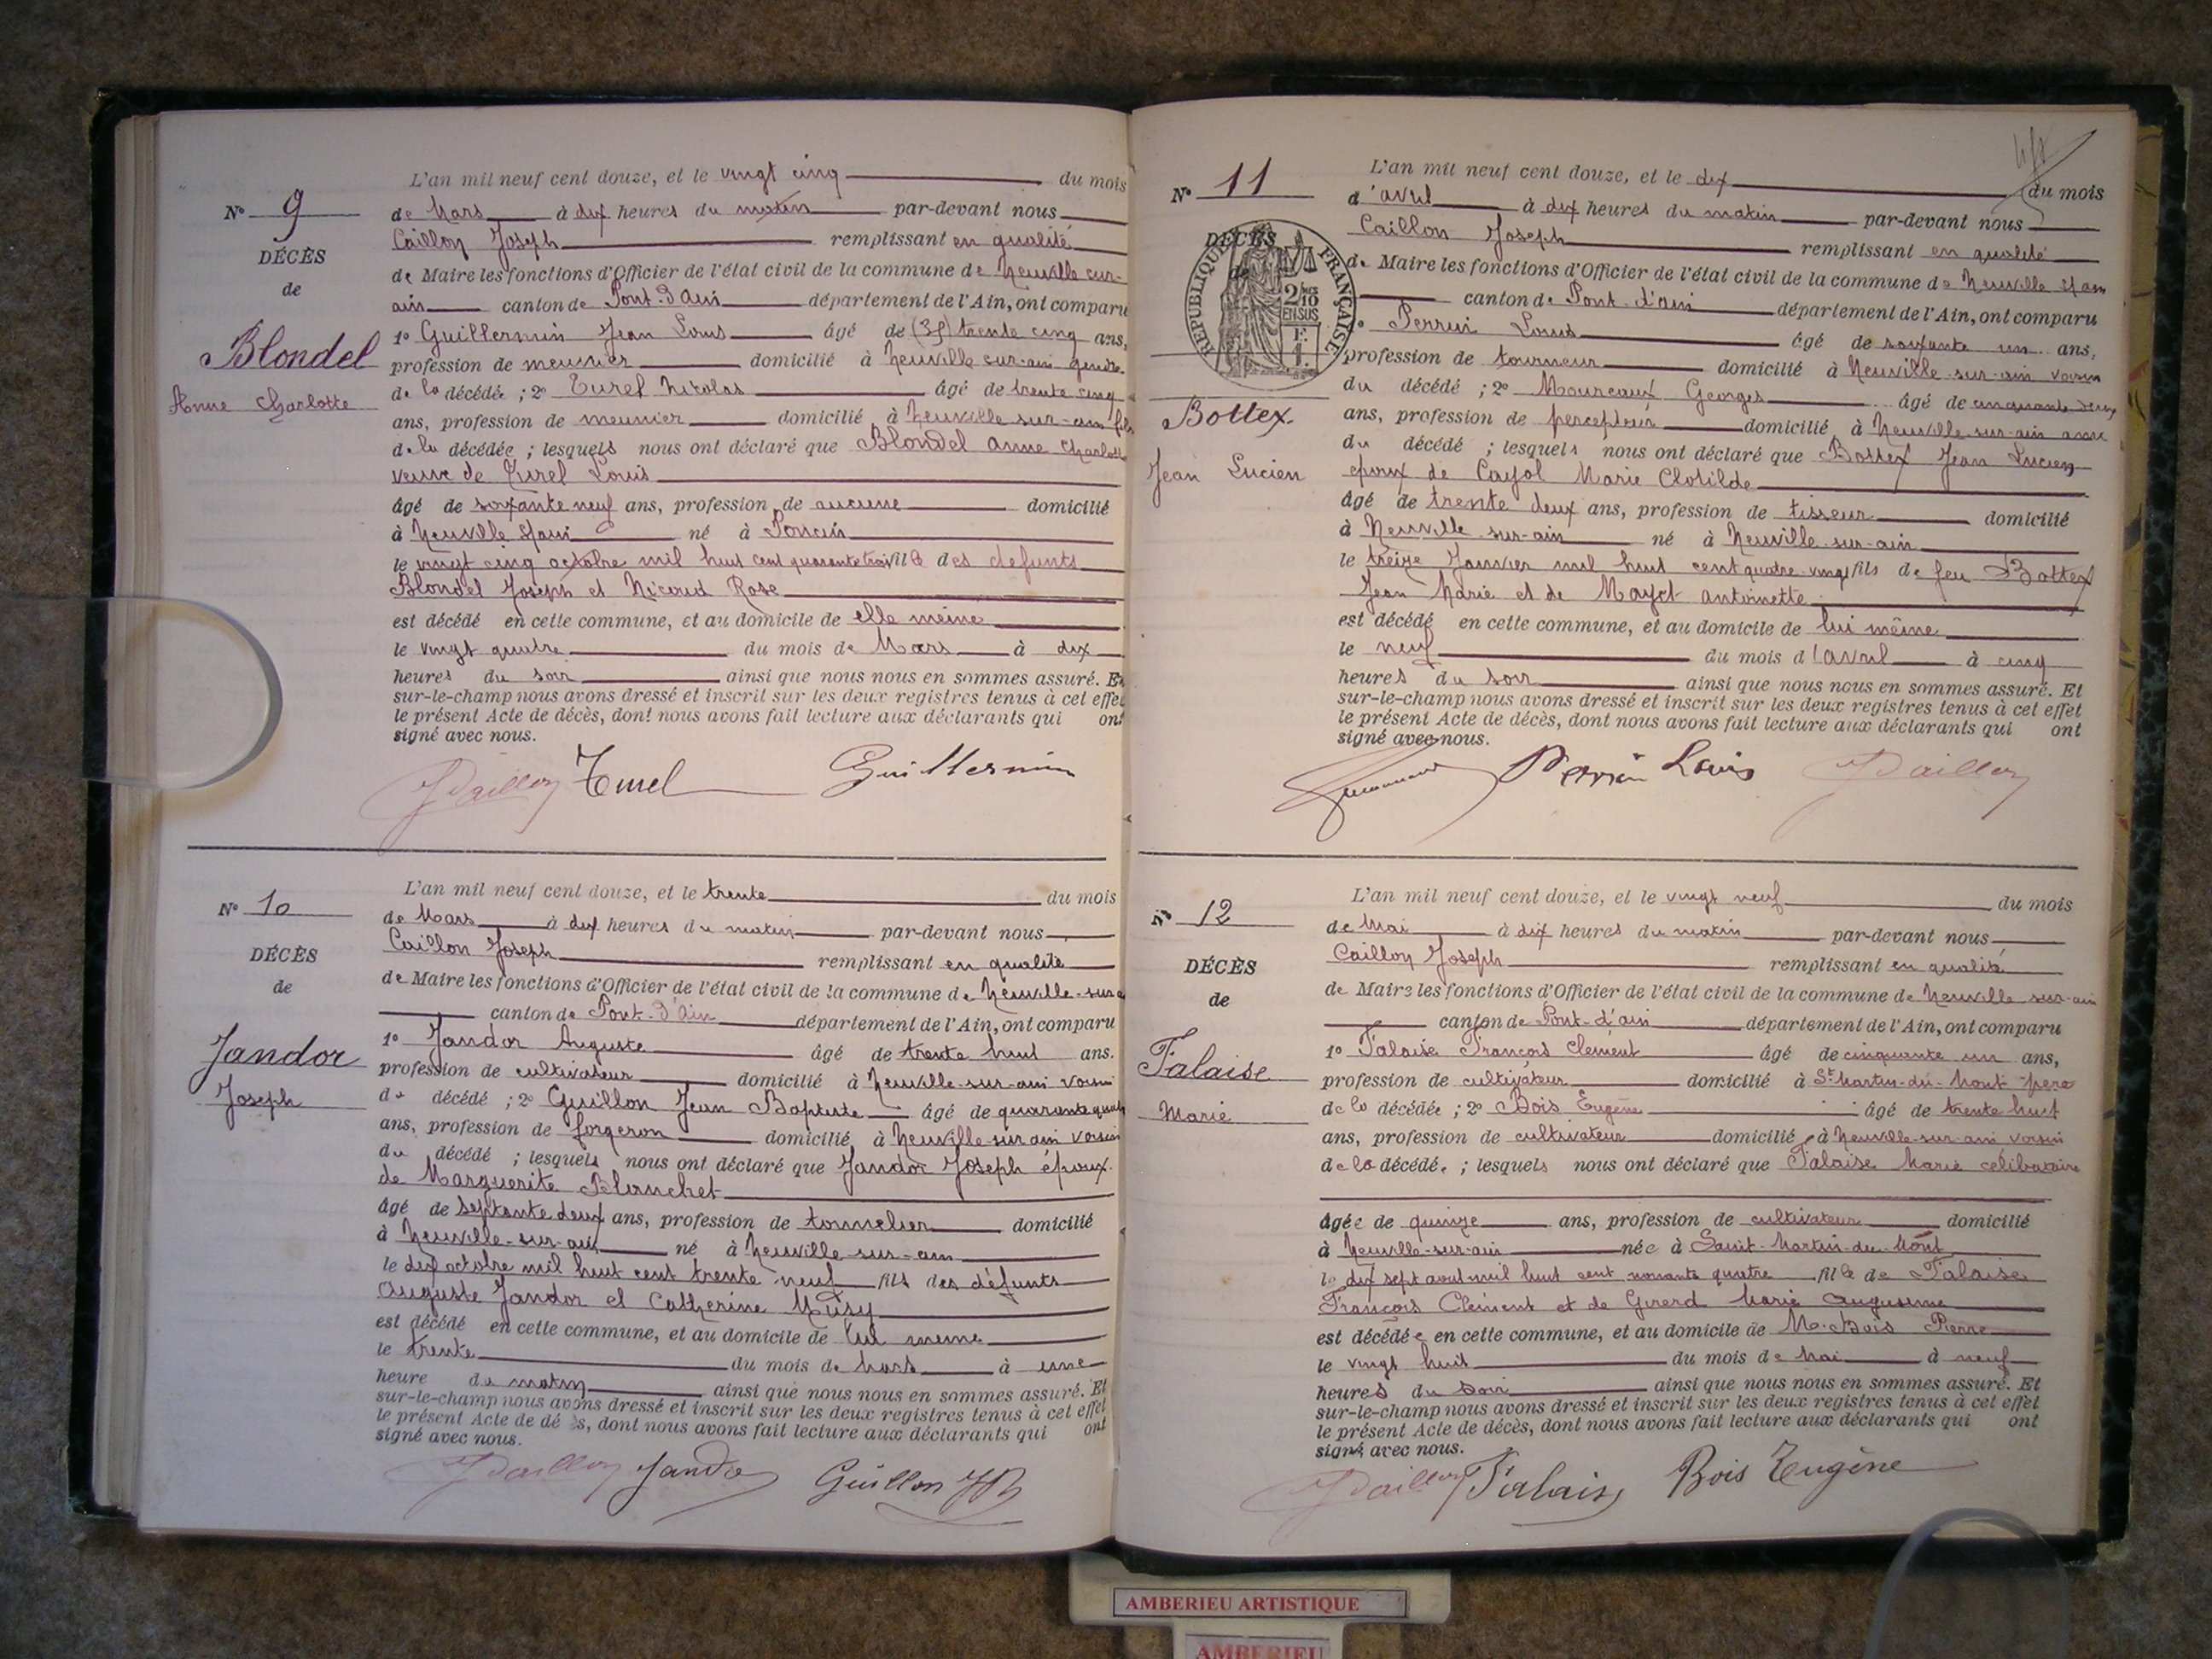 L'an mil neuf cent douze, et le vingt cinq du mois
N° 9
de Mars à dix heures du matin par-devant nous
Caillon Joseph remplissant en qualité
DÉCÈS
de Maire les fonctions d'Officier de l'état civil de la commune de Neuville sur-
de
ain canton de Pont-d'Ain département de l'Ain, ont comparu
1° Guillermin Jean Louis âgé de (35) trente cinq ans,
Blondel
profession de meunier domicilié à Neuville-sur-ain gendre
de la décédée ; 2° Turel Nicolas âgé de trente cinq
Anne Charlotte
ans, profession de meunier domicilié à Neuville-sur-ain fils
de la décédée ; lesquels nous ont déclaré que Blondel Anne Charlotte
veuve de Turel Louis
âgé de soixante neuf ans, profession de aucune domicilié
à Neuville s/ain né à Poncin
le vingt cinq octobre mil huit cent quarante trois fille des défunts
Blondel Joseph et Nicoud Rose
est décédé en cette commune, et au domicile de elle même
le vingt quatre du mois de Mars à dix
heures du soir ainsi que nous nous en sommes assuré. Et
sur-le-champ nous avons dressé et inscrit sur les deux registres tenus à cet effet
le présent Acte de décès, dont nous avons fait lecture aux déclarants qui ont
signé avec nous.
JCaillon Turel Guillermin
L'an mil neuf cent douze, et le trente du mois
N° 10
de Mars à dix heures du matin par-devant nous
Caillon Joseph remplissant en qualité
DÉCÈS
de Maire les fonctions d'Officier de l'état civil de la commune de Neuville-sur a
de
canton de Pont-d'Ain département de l'Ain, ont comparu
1° Jandor Auguste âgé de trente huit ans.
Jandor
profession de cultivateur domicilié à Neuville-sur-ain voisin
du décédé ; 2° Guillon Jean Baptiste âgé de quarante quatre
Joseph
ans, profession de forgeron domicilié à Neuville sur ain voisin
du décédé ; lesquels nous ont déclaré que Jandor Joseph époux
de Marguerite Blanchet
âgé de septante deux ans, profession de tonnelier domicilié
à Neuville-sur-ain né à Neuville-sur-ain
le dix octobre mil huit cent trente neuf fils des défunts
Auguste Jandor et Catherine Musy
est décédé en cette commune, et au domicile de lui meme
le trente du mois de Mars à une
heure du matin ainsi que nous nous en sommes assuré. Et
sur-le-champ nous avons dressé et inscrit sur les deux registres tenus à cet effet
le présent Acte de dé s, dont nous avons fait lecture aux déclarants qui ont
signé avec nous.
JCaillon Jandor Guillon JB
L'an mil neuf cent douze, et le dix du mois
N° 11
d'avril à dix heures du matin par-devant nous
Caillon Joseph remplissant en qualité
DÉCÈS
de
RÉPUBLIQUE FRANÇAISE
2/10 EN SUS
F. 1.
de Maire les fonctions d'Officier de l'état civil de la commune de Neuville s/ain
canton de Pont-d'ain département de l'Ain, ont comparu
Perrin Louis âgé de soixante un ans,
profession de tourneur domicilié à Neuville-sur-ain voisin
du décédé ; 2° Moureaux Georges âgé de cinquante deux
Bottex
ans, profession de percepteur domicilié à Neuville-sur-ain ami
du décédé ; lesquels nous ont déclaré que Bottex Jean Lucien
Jean Lucien
époux de Cayol Marie Clotilde
âgé de trente deux ans, profession de tisseur domicilié
à Neuville-sur-ain né à Neuville-sur-ain
le treize Janvier mil huit cent quatre-vingt fils de feu Bottex
Jean Marie et de Mayet antoinette
est décédé en cette commune, et au domicile de lui même
le neuf du mois d'avril à cinq
heures du soir ainsi que nous nous en sommes assuré. Et
sur-le-champ nous avons dressé et inscrit sur les deux registres tenus à cet effet
le présent Acte de décès, dont nous avons fait lecture aux déclarants qui ont
signé avec nous.
Perrin Louis JCaillon
L'an mil neuf cent douze, et le vingt neuf du mois
N° 12
de Mai à dix heures du matin par-devant nous
Caillon Joseph remplissant en qualité
DÉCÈS
de Maire les fonctions d'Officier de l'état civil de la commune de Neuville-sur-ain
de
canton de Pont-d'ain département de l'Ain, ont comparu
1° Falaise François Clement âgé de cinquante un ans,
Falaise
profession de cultivateur domicilié à St Martin-du-Mont père
Marie
de la décédée ; 2° Bois Eugène âgé de trente huit
ans, profession de cultivateur domicilié à Neuville-sur-ain voisin
de la décédée ; lesquels nous ont déclaré que Falaise Marie célibataire
âgée de quinze ans, profession de cultivateur domicilié
à Neuville-sur-ain née à Saint-Martin-du-Mont
le dix sept aout mil huit cent nonante quatre fille de Falaise
François Clément et de Girerd Marie Augustine
est décédée en cette commune, et au domicile de Mr Bois Pierre
le vingt huit du mois de Mai à neuf
heures du soir ainsi que nous nous en sommes assuré. Et
sur-le-champ nous avons dressé et inscrit sur les deux registres tenus à cet effet
le présent Acte de décès, dont nous avons fait lecture aux déclarants qui ont
signé avec nous.
JCaillon Falaise Bois Eugène
AMBERIEU ARTISTIQUE
AMBERIEU